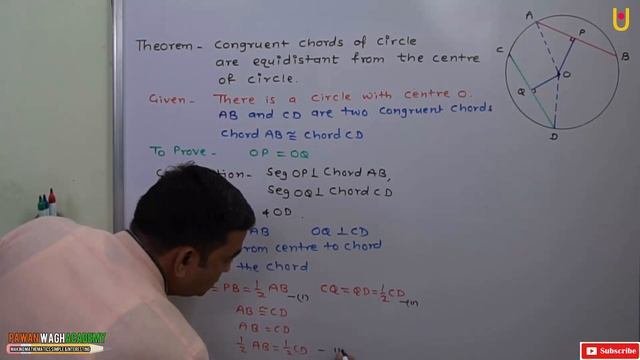 Theorem - Congruent chords of circle
are equidistant from the centre
of circle.
Given - There is a circle with centre O.
AB and CD are two congruent chords
chord AB ≅ chord CD
To Prove - OP = OQ
Seg OP ⊥ Chord AB,
Seg OQ ⊥ Chord CD
& OD.
AB OQ ⊥ CD
from centre to chord
the chord
= PB = 1/2 AB -(I) CQ = QD = 1/2 CD -(II)
AB ≅ CD
AB = CD
1/2 AB = 1/2 CD -
A
P
B
C
O
Q
D
PAWAN WAGH ACADEMY
MAKING MATHEMATICS SIMPLE & INTERESTING
Subscribe